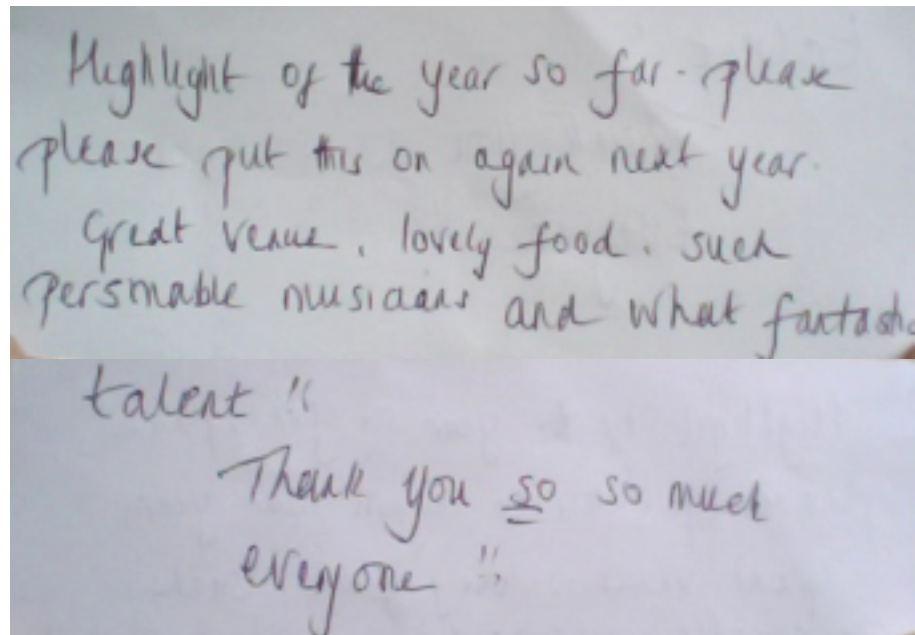 Highlight of the year so far - please
please put this on again next year.
Great venue, lovely food, such
personable musicians and what fantastic
talent !!
Thank you so so much
everyone !!